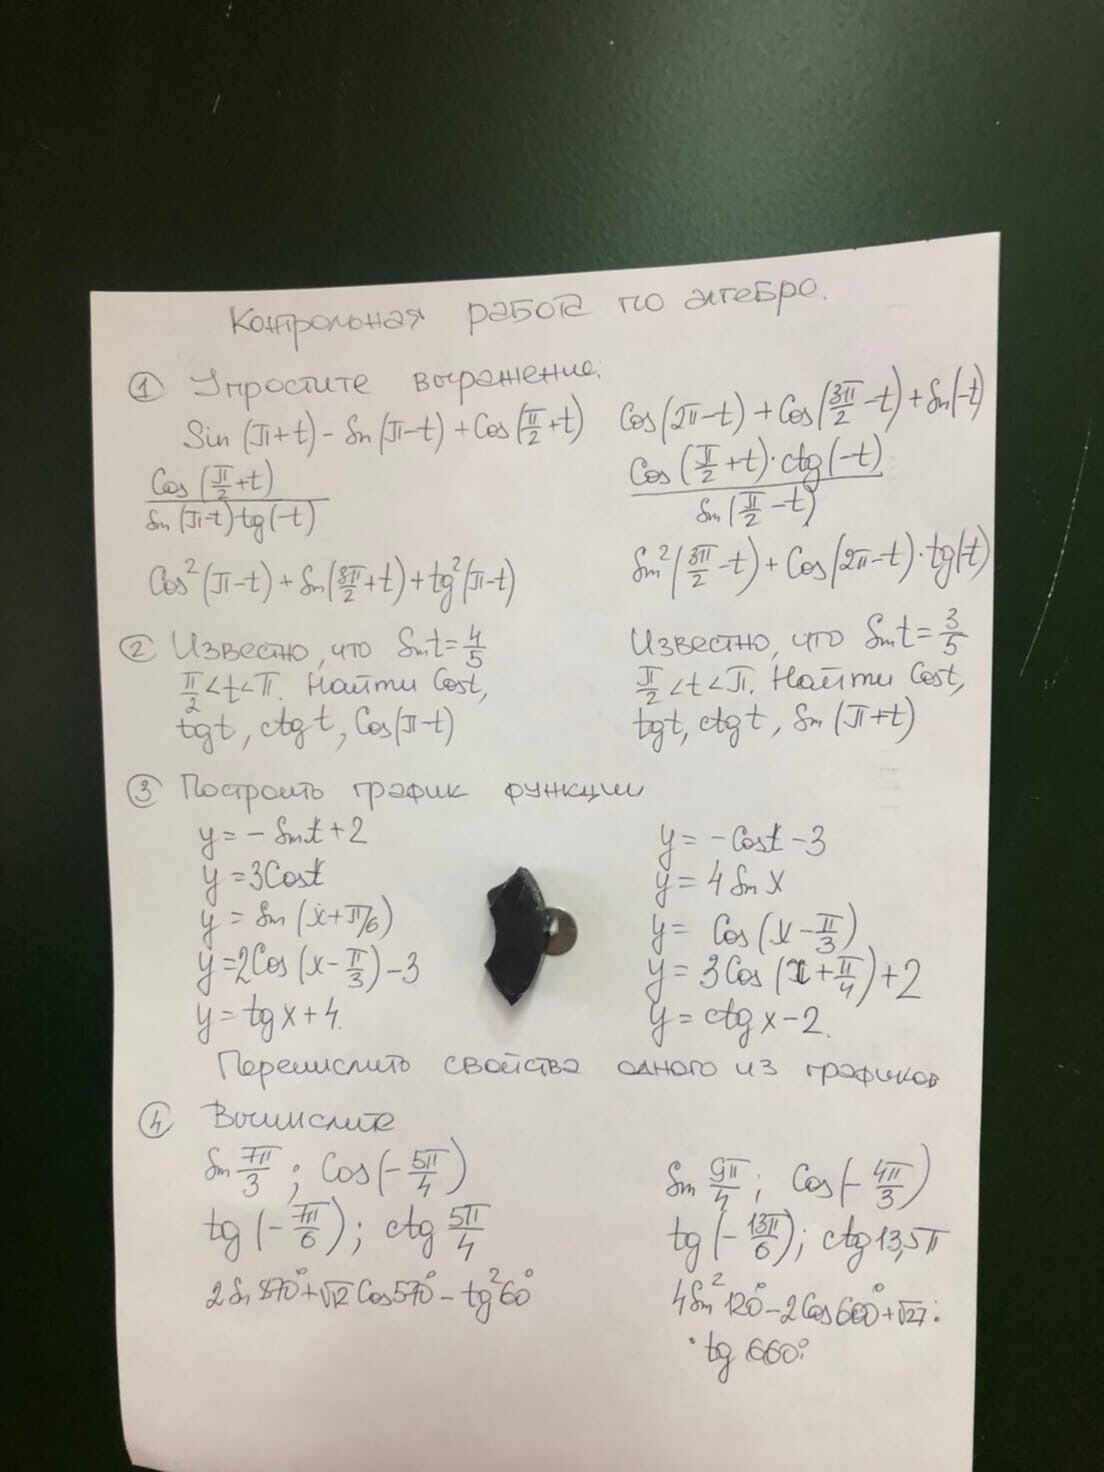 Контрольная работа по алгебре.
① Упростите выражение:
Sin (π+t) - Sin (π-t) + Cos(π/2+t)
Cos (π/2+t) / Sin (π-t)·tg(-t)
Cos²(π-t) + Sin(3π/2+t) + tg²(π-t)
Cos(2π-t) + Cos(3π/2-t) + Sin(-t)
Cos (π/2+t)·ctg(-t) / Sin(π/2-t)
Sin²(3π/2-t) + Cos(2π-t)·tg(-t)
② Известно, что Sin t = 4/5
π/2 < t < π. Найти Cost,
tgt, ctgt, Cos(π-t)
Известно, что Sin t = 3/5
π/2 < t < π. Найти Cost,
tgt, ctgt, Sin (π+t)
③ Построить график функции
y = - Sin t + 2
y = 3Cost
y = Sin (x+π/6)
y = 2Cos (x-π/3) - 3
y = tg x + 4.
y = -Cost - 3
y = 4 Sin x
y = Cos(x-π/3)
y = 3Cos (x+π/4) + 2
y = ctg x - 2.
Перечислить свойства одного из графиков
④ Вычислите
Sin 7π/3 ; Cos(-5π/4)
tg(-7π/6); ctg 5π/4
2Sin 870° + √12 Cos 570° - tg²60°
Sin 9π/4 ; Cos(-4π/3)
tg(-13π/6); ctg 13,5π
4Sin²120° - 2Cos 600° + √27·
·tg 660°